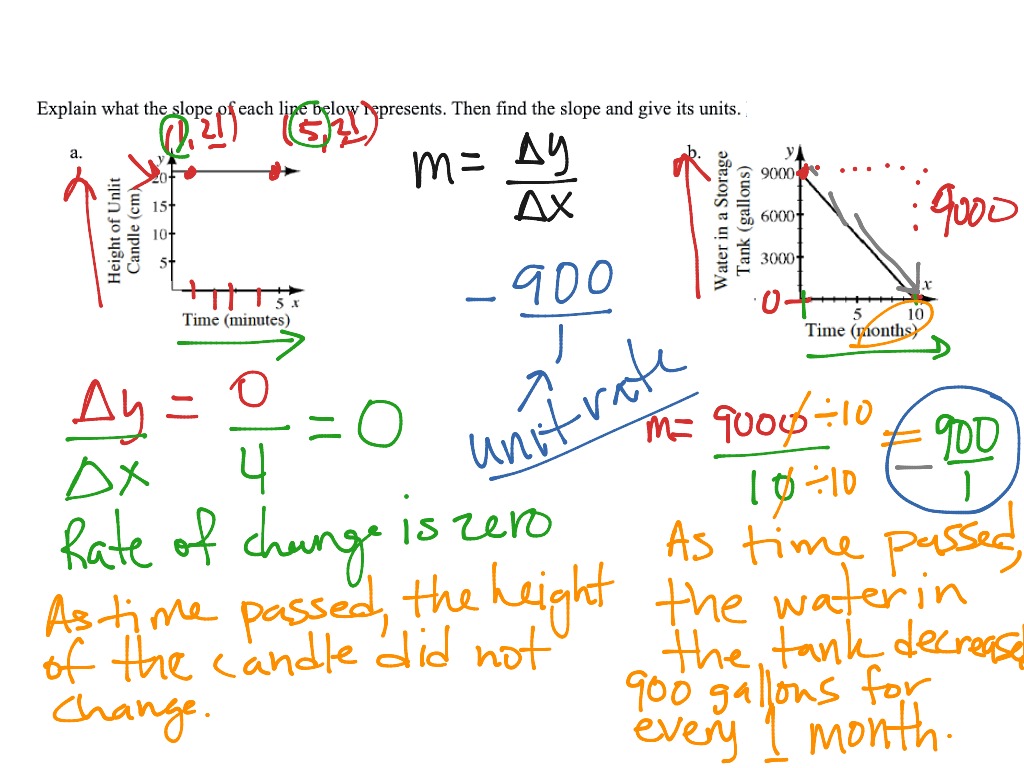 Explain what the slope of each line below represents. Then find the slope and give its units.
(1, 21) (5, 21)
a.
y
20
15
10
5
5 x
Height of Unlit
Candle (cm)
Time (minutes)
m = Δy
Δx
b.
y
9000
6000
3000
0
5
10
x
Water in a Storage
Tank (gallons)
Time (months)
9000
- 900
1
unit rate
Δy = 0 = 0
Δx 4
m = 9000 ÷10 = - 900
10 ÷10 1
Rate of change is zero
As time passed, the height
of the candle did not
change.
As time passed,
the water in
the tank decreased
900 gallons for
every 1 month.